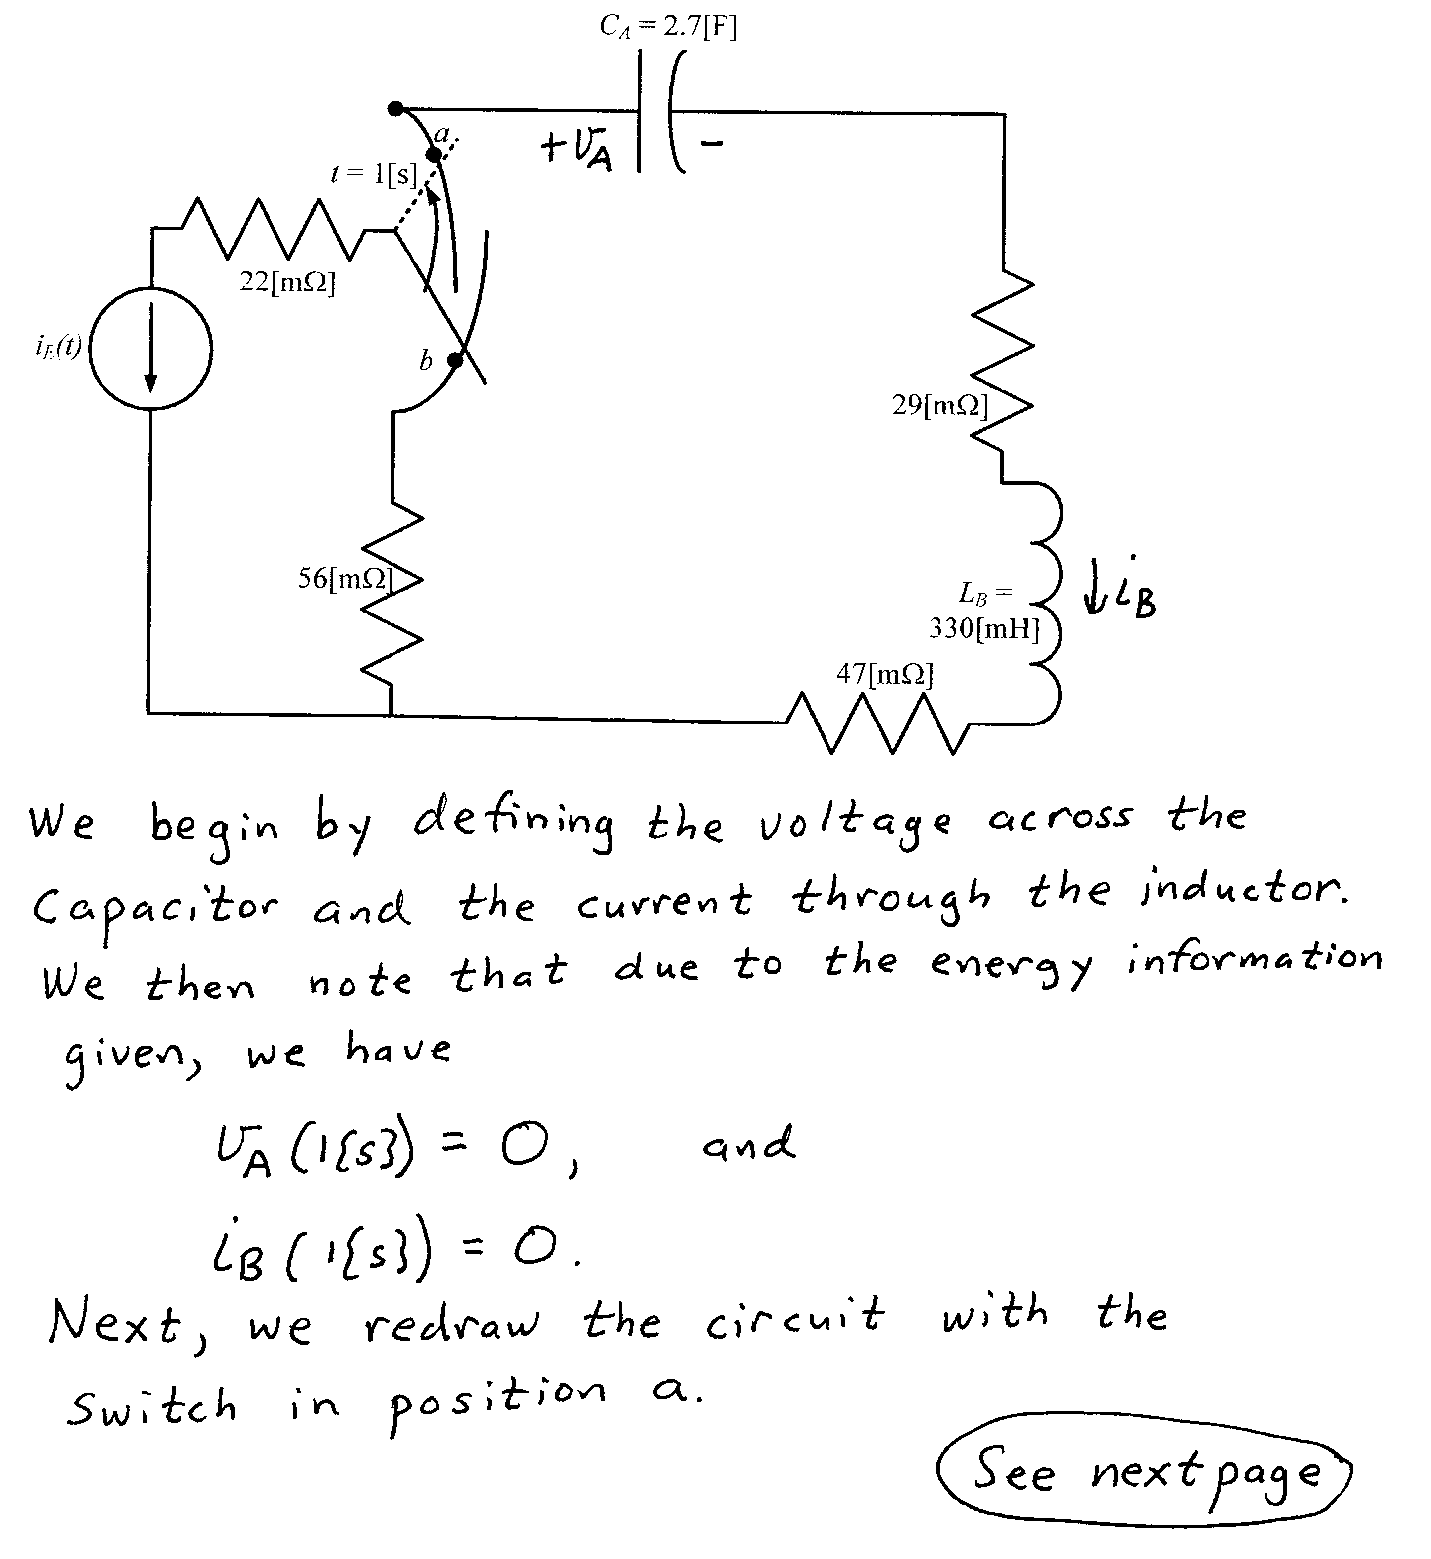 C_A = 2.7[F]
a
+ v_A -
t = 1[s]
22[mΩ]
i_E(t)
b
29[mΩ]
56[mΩ]
L_B =
330[mH]
i_B
47[mΩ]
We begin by defining the voltage across the
Capacitor and the current through the inductor.
We then note that due to the energy information
given, we have
v_A (1{s}) = 0, and
i_B (1{s}) = 0.
Next, we redraw the circuit with the
switch in position a.
See next page